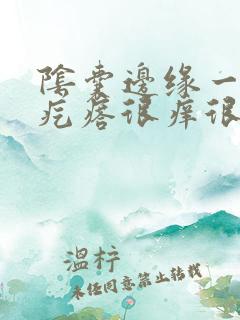 陰囊邊缘一
疙瘩很痒很
溫梓
未任同意禁止转载